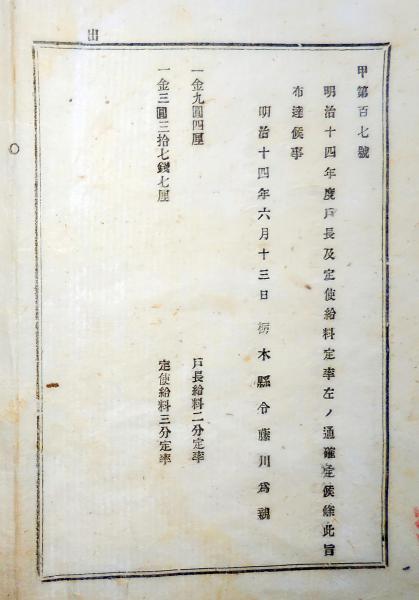 甲第百七號
明治十四年度戸長及定使給料定率左ノ通確定候條此旨
布達候事
明治十四年六月十三日　栃木縣令藤川爲親
一金九圓四厘　戸長給料二分定率
一金三圓三拾七錢七厘　定使給料三分定率
出